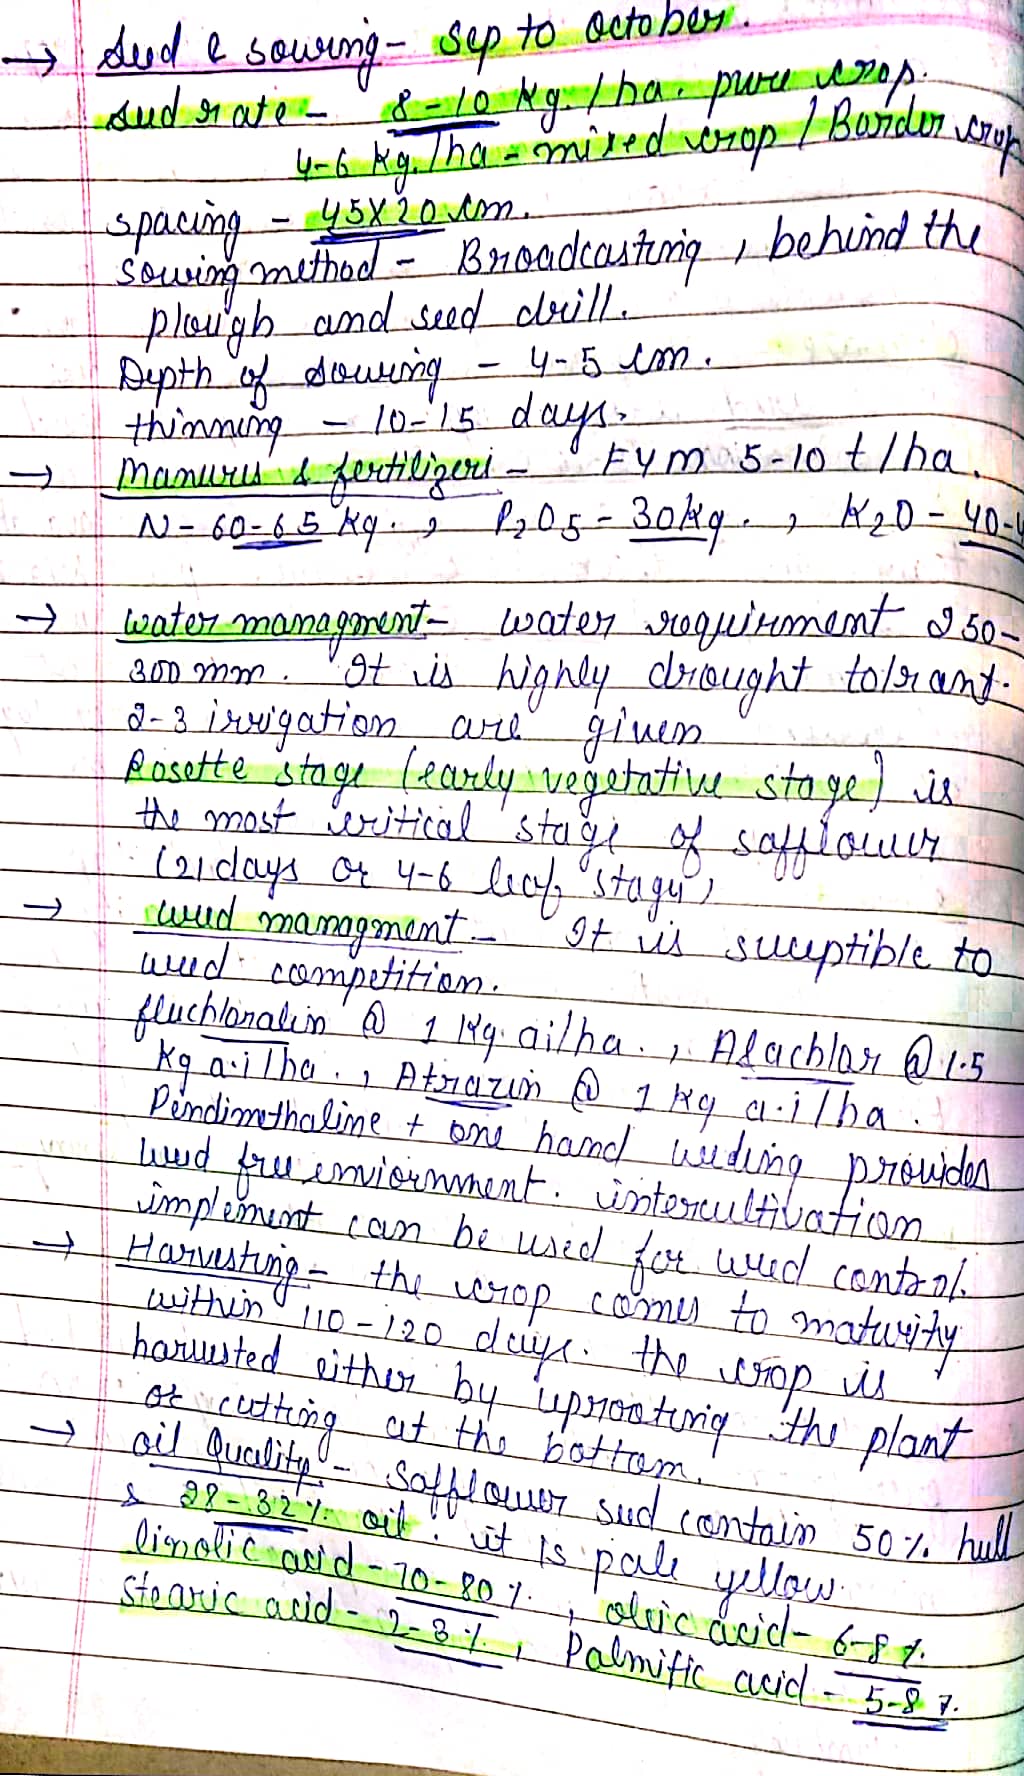 → Seed & sowing - Sep to October.
Seed rate - 8-10 Kg./ha. pure crop.
4-6 Kg./ha - mixed crop / Border crop
spacing - 45X20 cm.
Sowing method - Broadcasting, behind the
plough and seed drill.
Depth of sowing - 4-5 cm.
thinning - 10-15 days.
→ Manures & fertilizers - FYM 5-10 t/ha.
N - 60-65 Kg., P2O5 - 30 Kg., K2O - 40-
→ water managment - water requirment 250-
300 mm. It is highly drought tolrant.
2-3 irrigation are given
Rosette stage (early vegetative stage) is
the most critical stage of safflower
(21 days or 4-6 leaf stage)
→ weed managment - It is suceptible to
weed competition.
fluchloralin @ 1 Kg. ai/ha., Alachlor @ 1.5
Kg a.i/ha., Atrazin @ 1 Kg a.i/ha.
Pendimethaline + one hand weeding provides
weed free enviornment. intercultivation
implement can be used for weed control.
→ Harvesting - the crop comes to maturity
within 110-120 days. the crop is
harvested either by uprooting the plant
or cutting at the bottom.
→ oil Quality - Safflower seed contain 50% hull
& 28-32% oil. it is pale yellow.
linolic acid - 70-80%, oleic acid - 6-8%.
Stearic acid - 2-3%, Palmitic acid - 5-8%.